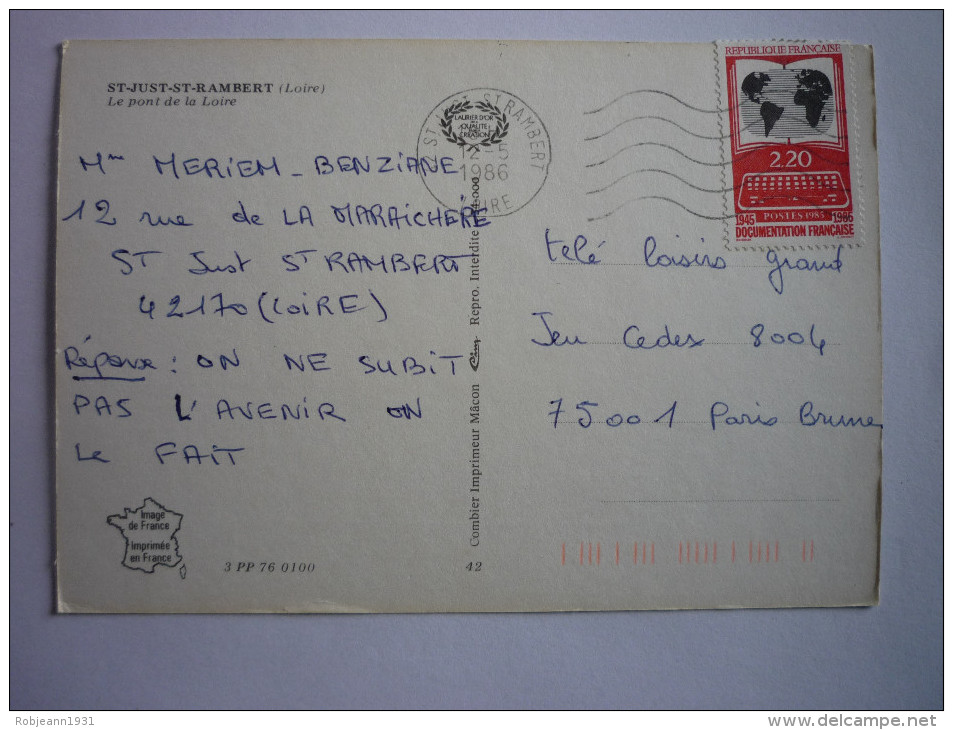 ST-JUST-ST-RAMBERT (Loire)
Le pont de la Loire
Mme MERIEM-BENZIANE
12 rue de LA MARAICHÈRE
ST Just ST RAMBERT
42170 (LOIRE)
Réponse : ON NE SUBIT
PAS L'AVENIR ON
Le FAIT
Image
de France
Imprimée
en France
3 PP 76 0100
42
Combier Imprimeur Mâcon Cim Repro. Interdite
ST RAMBERT
LAURIER D'OR
QUALITE
CREATION
2-5
1986
LOIRE
REPUBLIQUE FRANÇAISE
2.20
POSTES 1985
1945 1986
DOCUMENTATION FRANÇAISE
télé loisirs grand
Jeu Cedex 8004
75001 Paris Brune
Robjeann1931
www.delcampe.net